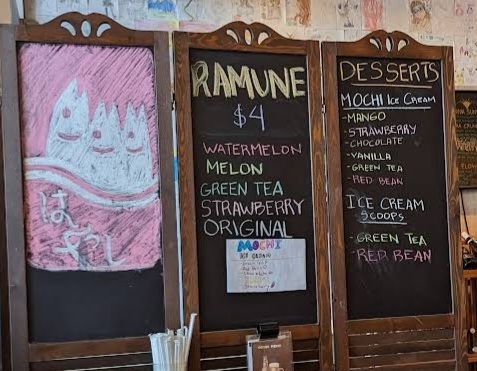 はやし
RAMUNE
$4
WATERMELON
MELON
GREEN TEA
STRAWBERRY
ORIGINAL
MOCHI
DESSERTS
MOCHI ICE CREAM
-MANGO
-STRAWBERRY
-CHOCOLATE
-VANILLA
-GREEN TEA
-RED BEAN
ICE CREAM
SCOOPS
-GREEN TEA
-RED BEAN